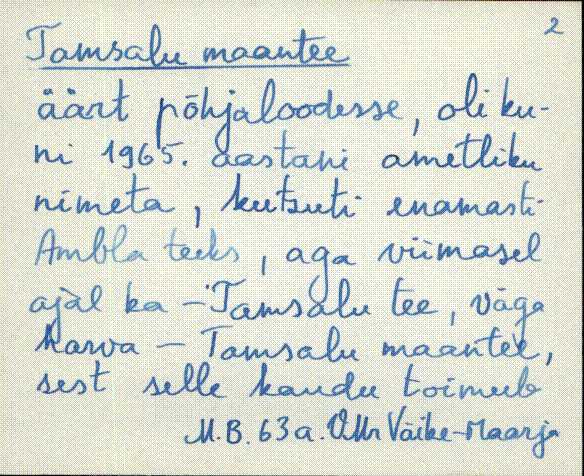 2
Tamsalu maantee
äärt põhjaloodesse, oli ku-
ni 1965. aastani ametliku
nimeta, kutsuti enamasti
Ambla teeks, aga viimasel
ajal ka - Tamsalu tee, väga
harva - Tamsalu maantee,
sest selle kaudu toimub
M.B. 63a. VMr Väike-Maarja